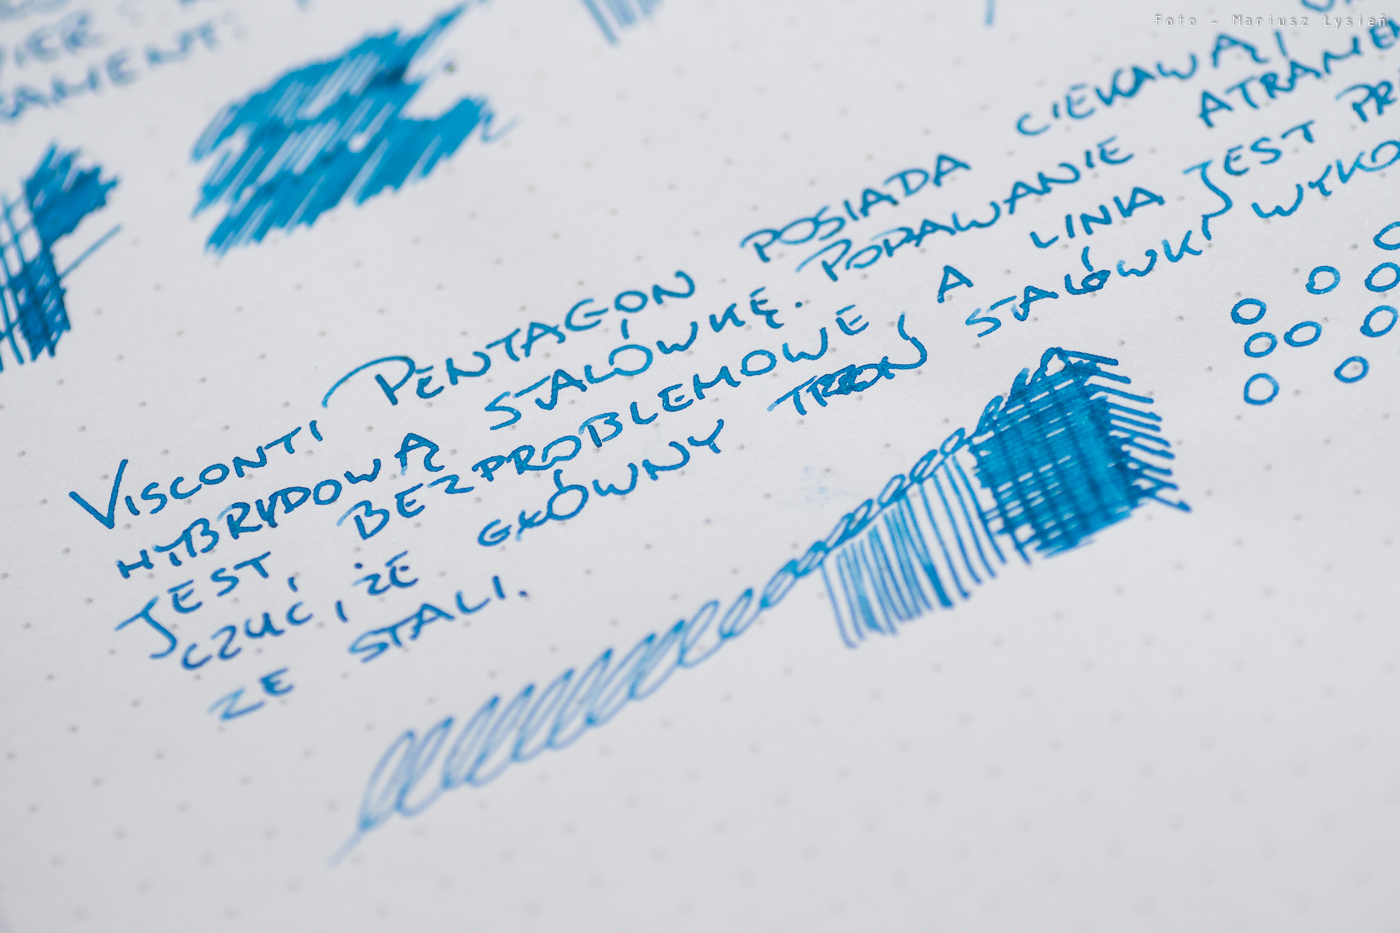 Foto - Mariusz Łysień
VISCONTI PENTAGON POSIADA CIEKAWĄ I
HYBRYDOWĄ STALÓWKĘ. PODAWANIE
JEST BEZPROBLEMOWE, A LINIA JEST
CZUĆ, ŻE GŁÓWNY STALÓWKI
ZE STALI.